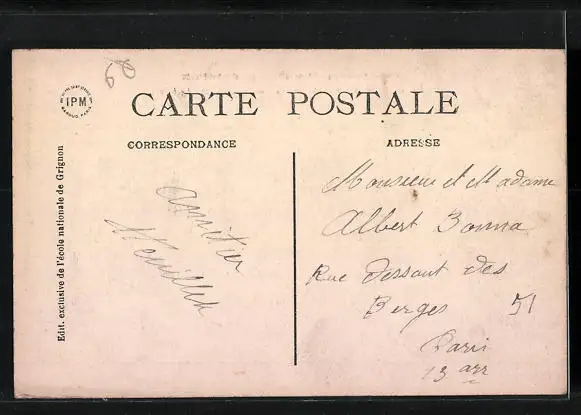 60
IPM
CARTE POSTALE
CORRESPONDANCE
ADRESSE
Edit. exclusive de l'école nationale de Grignon
Amitiés
Monsieur et Madame
Albert Bonna
Rue Dessout des
Berges 51
Paris
13 arr